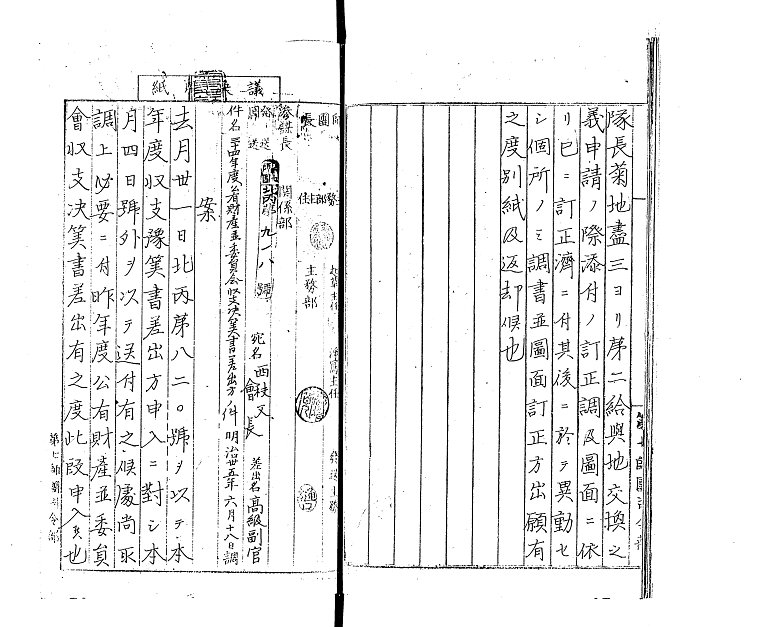 隊長菊地盡三ヨリ第二給與地交換之
義申請ノ際添付ノ訂正調及圖面ニ依
リ已ニ訂正濟ニ付其後ニ於テ異動セ
シ個所ノミ調書並圖面訂正方出願有
之度別紙及返却候也
議
紙
師團長
参謀長
関係部
主務部
北丙第九一八號
宛名 西枝文會長
差出名 高級副官
件名 三四年度公有財産並委員会収支決算書差出方ノ件 明治卅五年六月十八日調
案
去月廿一日北丙第八二〇號ヲ以テ本
年度収支豫算書差出方申入ニ對シ本
月四日號外ヲ以テ送付有之候處尚取
調上必要ニ付昨年度公有財産並委員
會収支决算書差出有之度此段申入候也
第七師團司令部